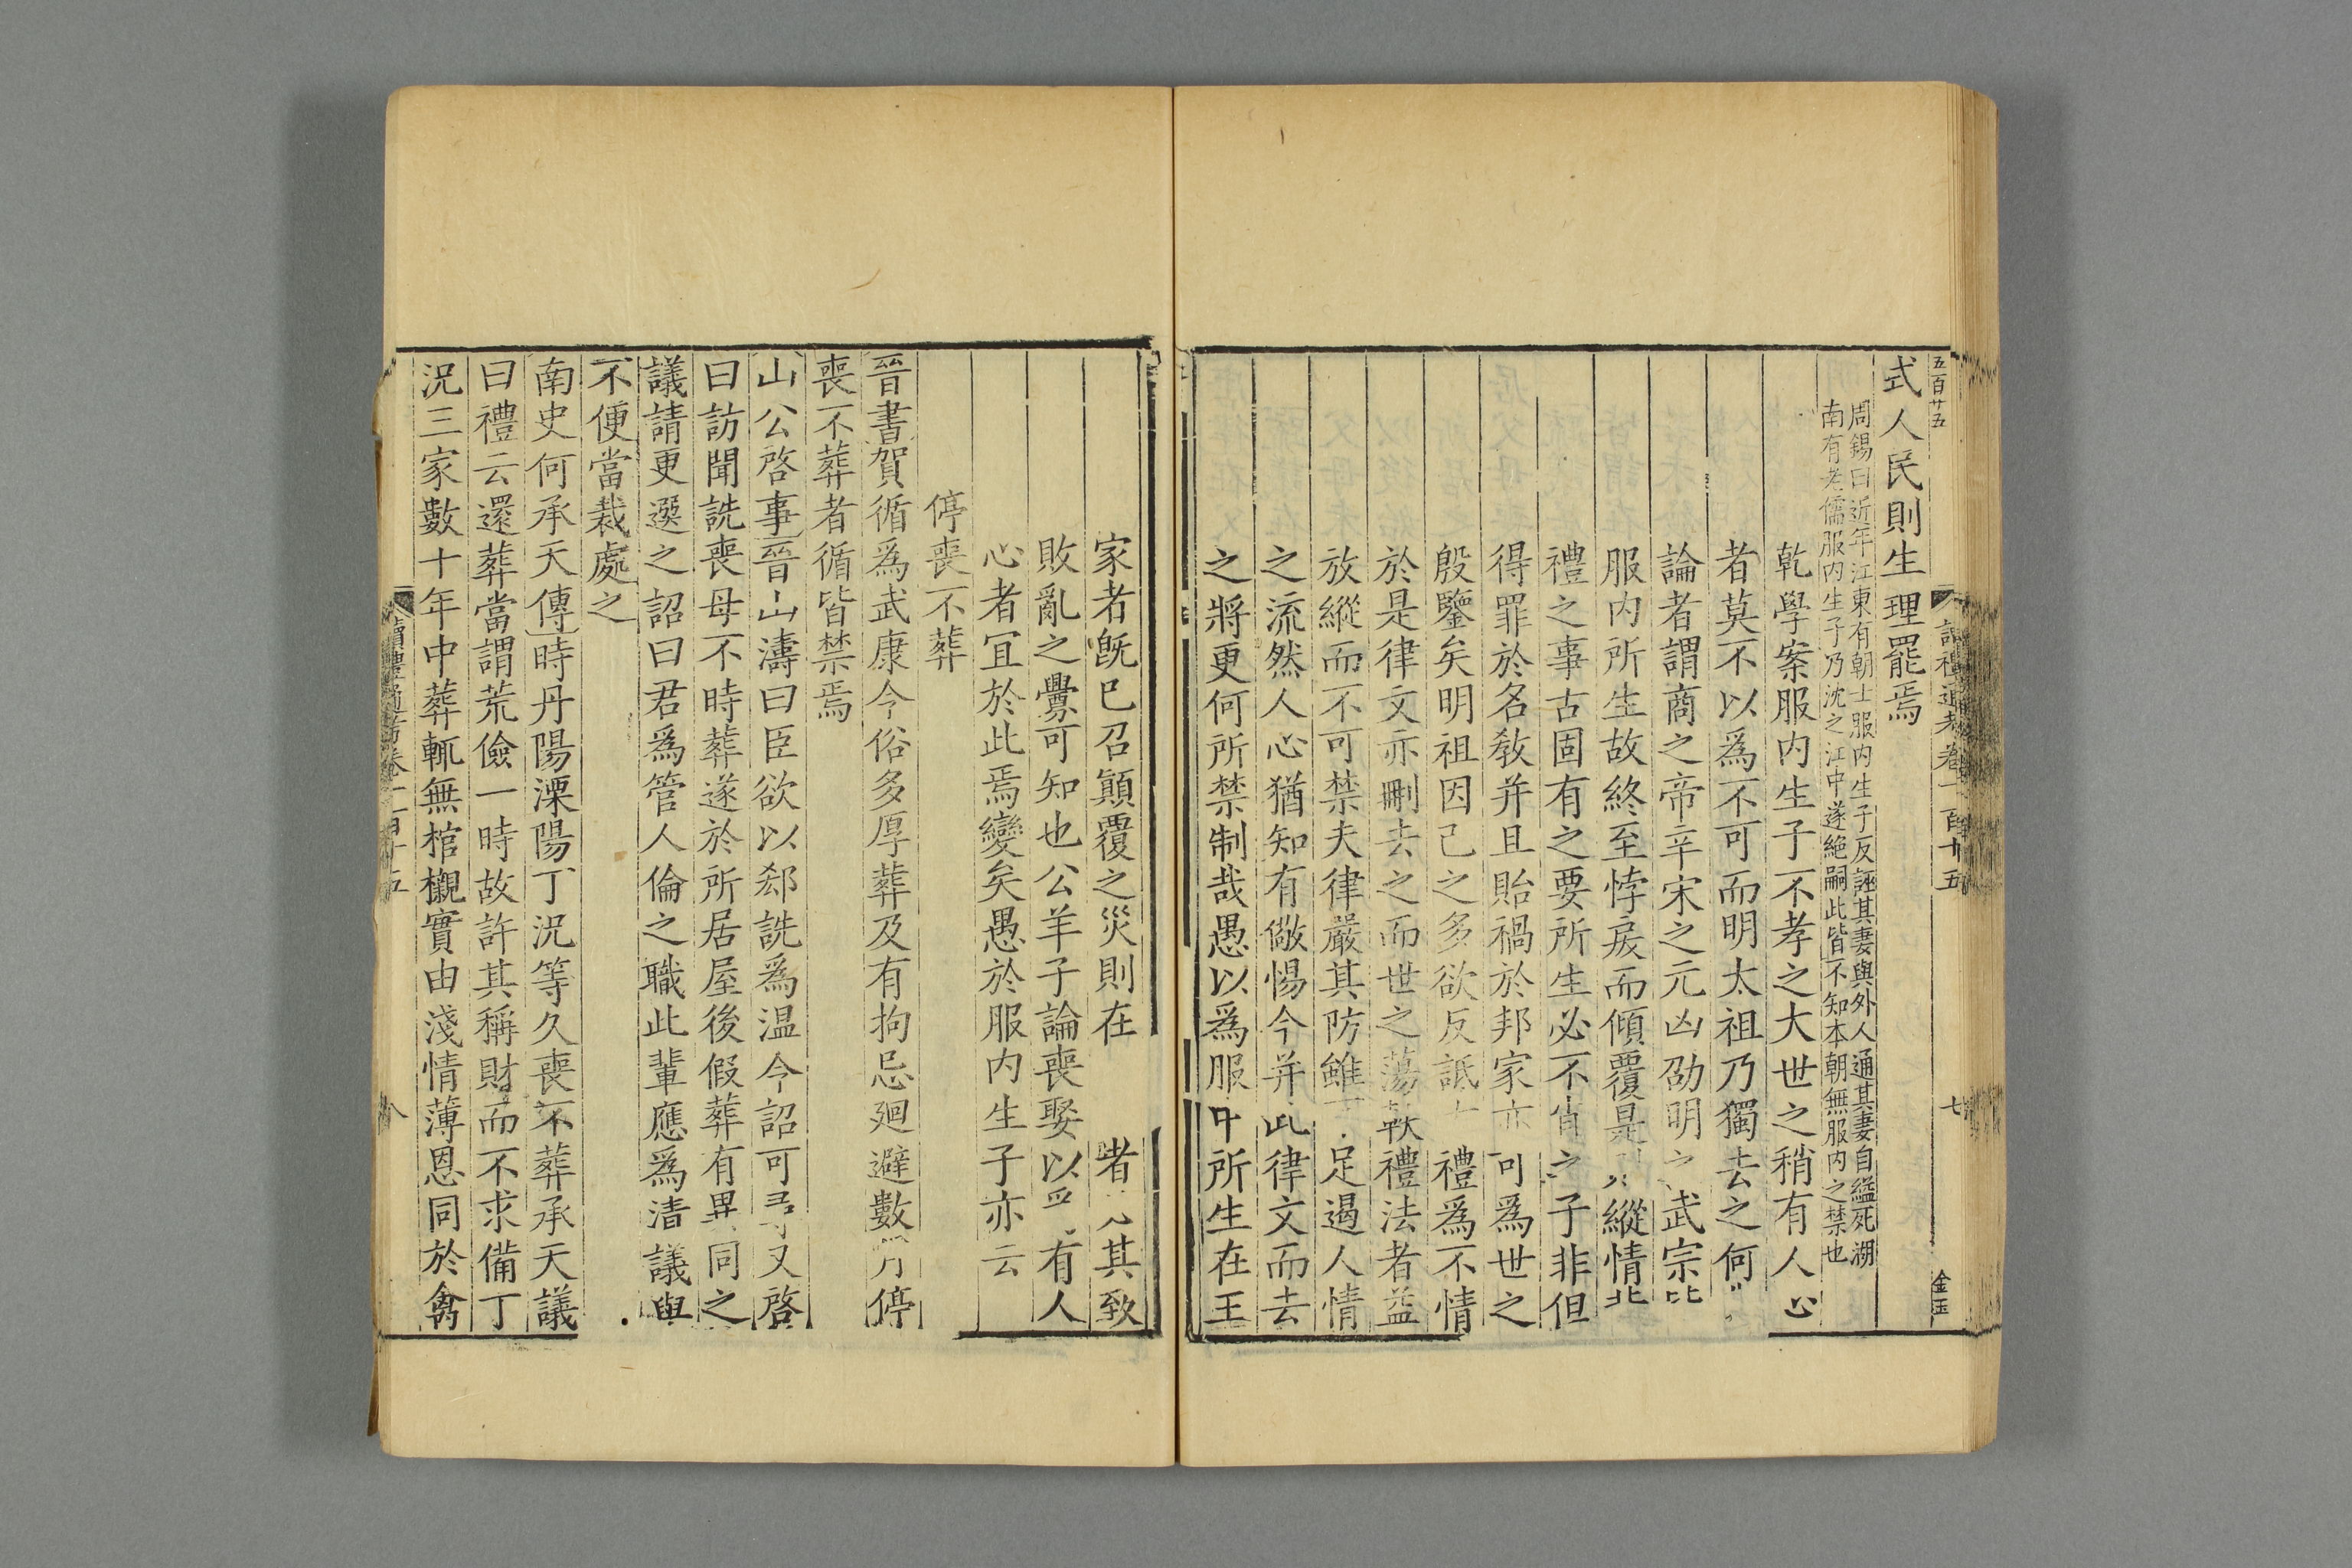 五百廿五
讀禮通考卷一百十五
七
金玉
式人民則生理罷焉
周錫曰近年江東有朝士服内生子反誣其妻與外人通其妻自縊死湖
南有老儒服内生子乃沈之江中遂絶嗣此皆不知本朝無服内之禁也
乾學案服内生子不孝之大世之稍有人心
者莫不以爲不可而明太祖乃獨去之何
論者謂商之帝辛宋之元凶劭明之武宗
服内所生故終至悖戾而傾覆是 縱情
禮之事古固有之要所生必不肖之子非但
得罪於名教并且貽禍於邦家亦可爲世之
殷鑒矣明祖因己之多欲反詆 禮爲不情
於是律文亦刪去之而世之蕩軼禮法者益
放縱而不可禁夫律嚴其防雖 足遏人情
之流然人心猶知有儆惕今并此律文而去
之將更何所禁制哉愚以爲服中所生在王
家者旣已召顚覆之災則在 者 其致
敗亂之釁可知也公羊子論喪娶以 有人
心者宜於此焉變矣愚於服内生子亦云
停喪不葬
晉書賀循爲武康令俗多厚葬及有拘忌廻避歲月停
喪不葬者循皆禁焉
山公啓事晉山濤曰臣欲以郄詵爲温令詔可尋又啓
曰訪聞詵喪母不時葬遂於所居屋後假葬有異同之
議請更選之詔曰君爲管人倫之職此輩應爲清議與
不便當裁處之
南史何承天傳時丹陽溧陽丁況等久喪不葬承天議
曰禮云還葬當謂荒儉一時故許其稱財而不求備丁
況三家數十年中葬輒無棺櫬實由淺情薄恩同於禽
讀禮通考卷一百十五
八